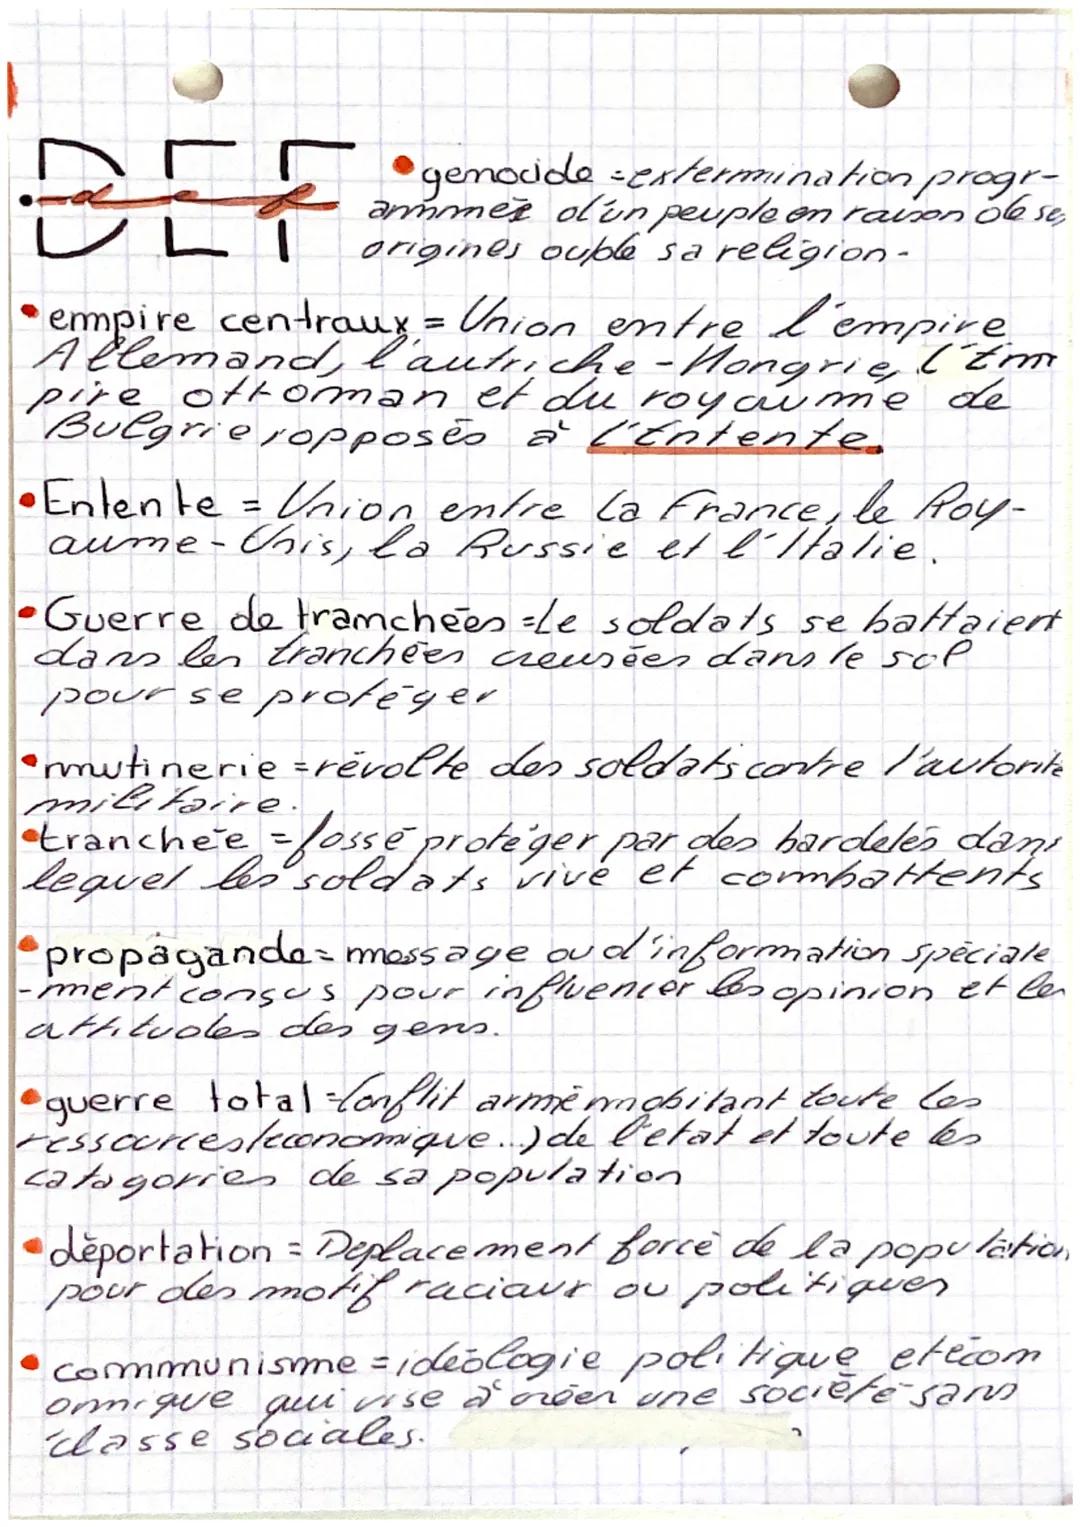 DEF
def
•genocide = extermination progr-
ammées d'un peuple en raison de ses
origines ou de sa religion.
•empire centraux = Union entre l'empire
Allemand, l'autriche-Hongrie, l'Em
pire ottoman et du royaume de
Bulgrie, opposés à l'Entente.
•Entente = Union entre la France, le Roy-
aume-Unis, la Russie et l'Italie.
•Guerre de tranchées = Le soldats se battaient
dans les tranchées creusées dans le sol
pour se protéger
•mutinerie = révolte des soldats contre l'autorité
militaire.
•tranchée = fossé protéger par des bardelés dans
lequel les soldats vive et combattents
•propagande = message ou d'information spéciale
-ment conçus pour influencer les opinion et les
attitudes des gens.
•guerre total = Conflit armé mobitant toute les
ressources (economique...) de l'etat et toute les
catagories de sa population
•déportation = Deplacement forcé de la population
pour des motif raciaux ou politiques
•communisme = idéologie politique et écom
omique qui vise à créer une société sans
classe sociales.